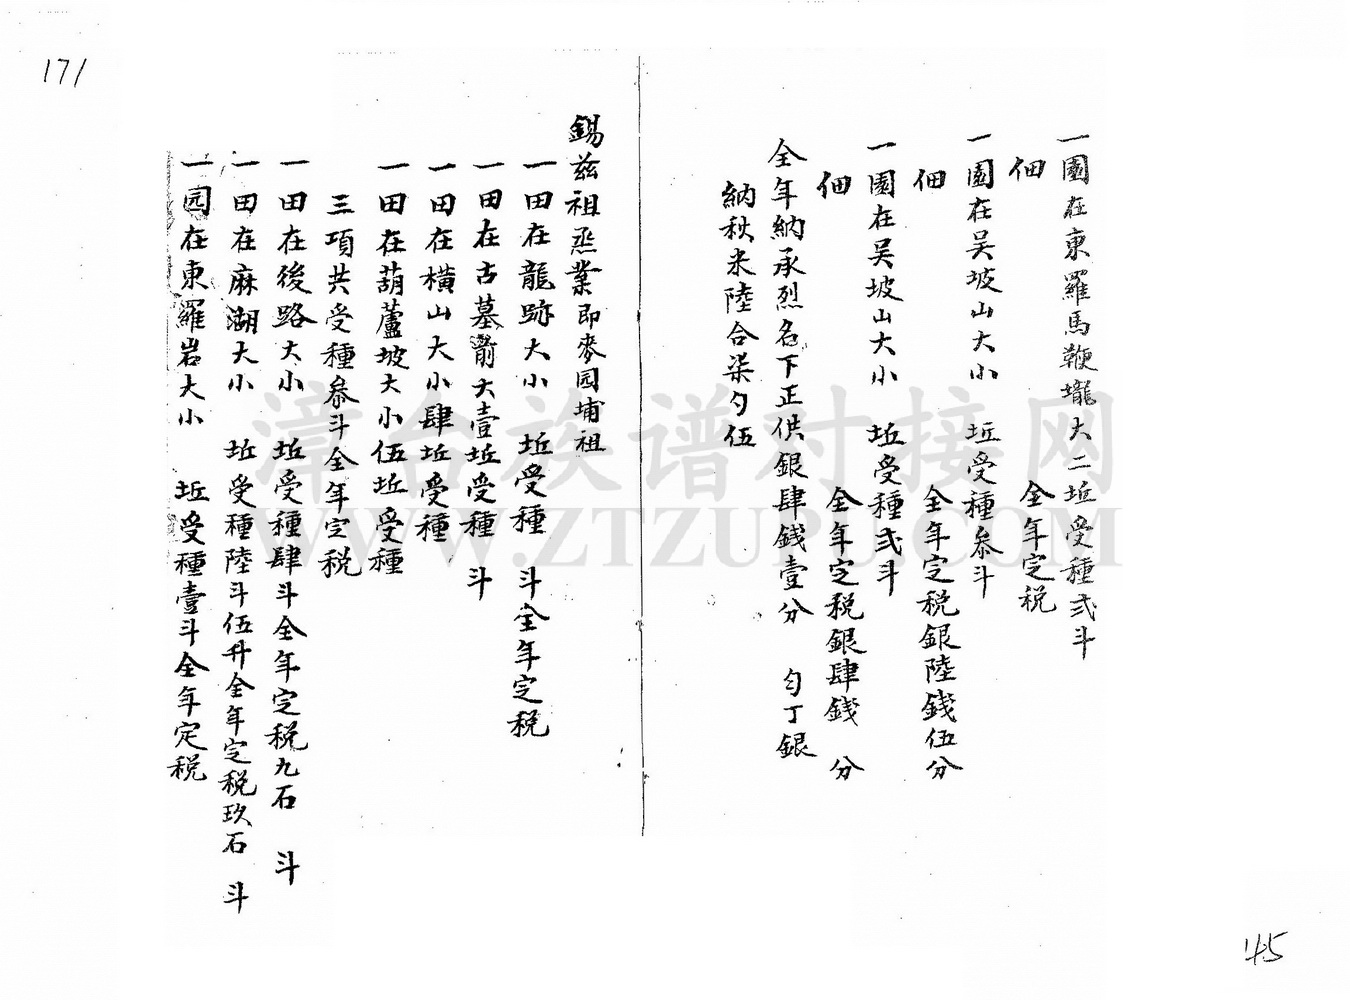 171
一園在東羅馬鞭壠大二坵受種弍斗
佃 全年定税
一園在吴坡山大小 坵受種叅斗
佃 全年定税銀陸錢伍分
一園在吴坡山大小 坵受種弍斗
佃 全年定税銀肆錢 分
全年納承烈名下正供銀肆錢壹分 匀丁銀
納秋米陸合柒勺伍
錫兹祖烝業即麥园埔祖
一田在龍跡大小 坵受種 斗全年定税
一田在古墓前大壹坵受種 斗
一田在橫山大小肆坵受種
一田在葫蘆坡大小伍坵受種
三項共受種叅斗全年定税
一田在後路大小 坵受種肆斗全年定税九石 斗
一田在麻湖大小 坵受種陸斗伍升全年定税玖石 斗
一园在東羅岩大小 坵受種壹斗全年定税
45
漳台族谱对接网
WWW.ZTZUPU.COM